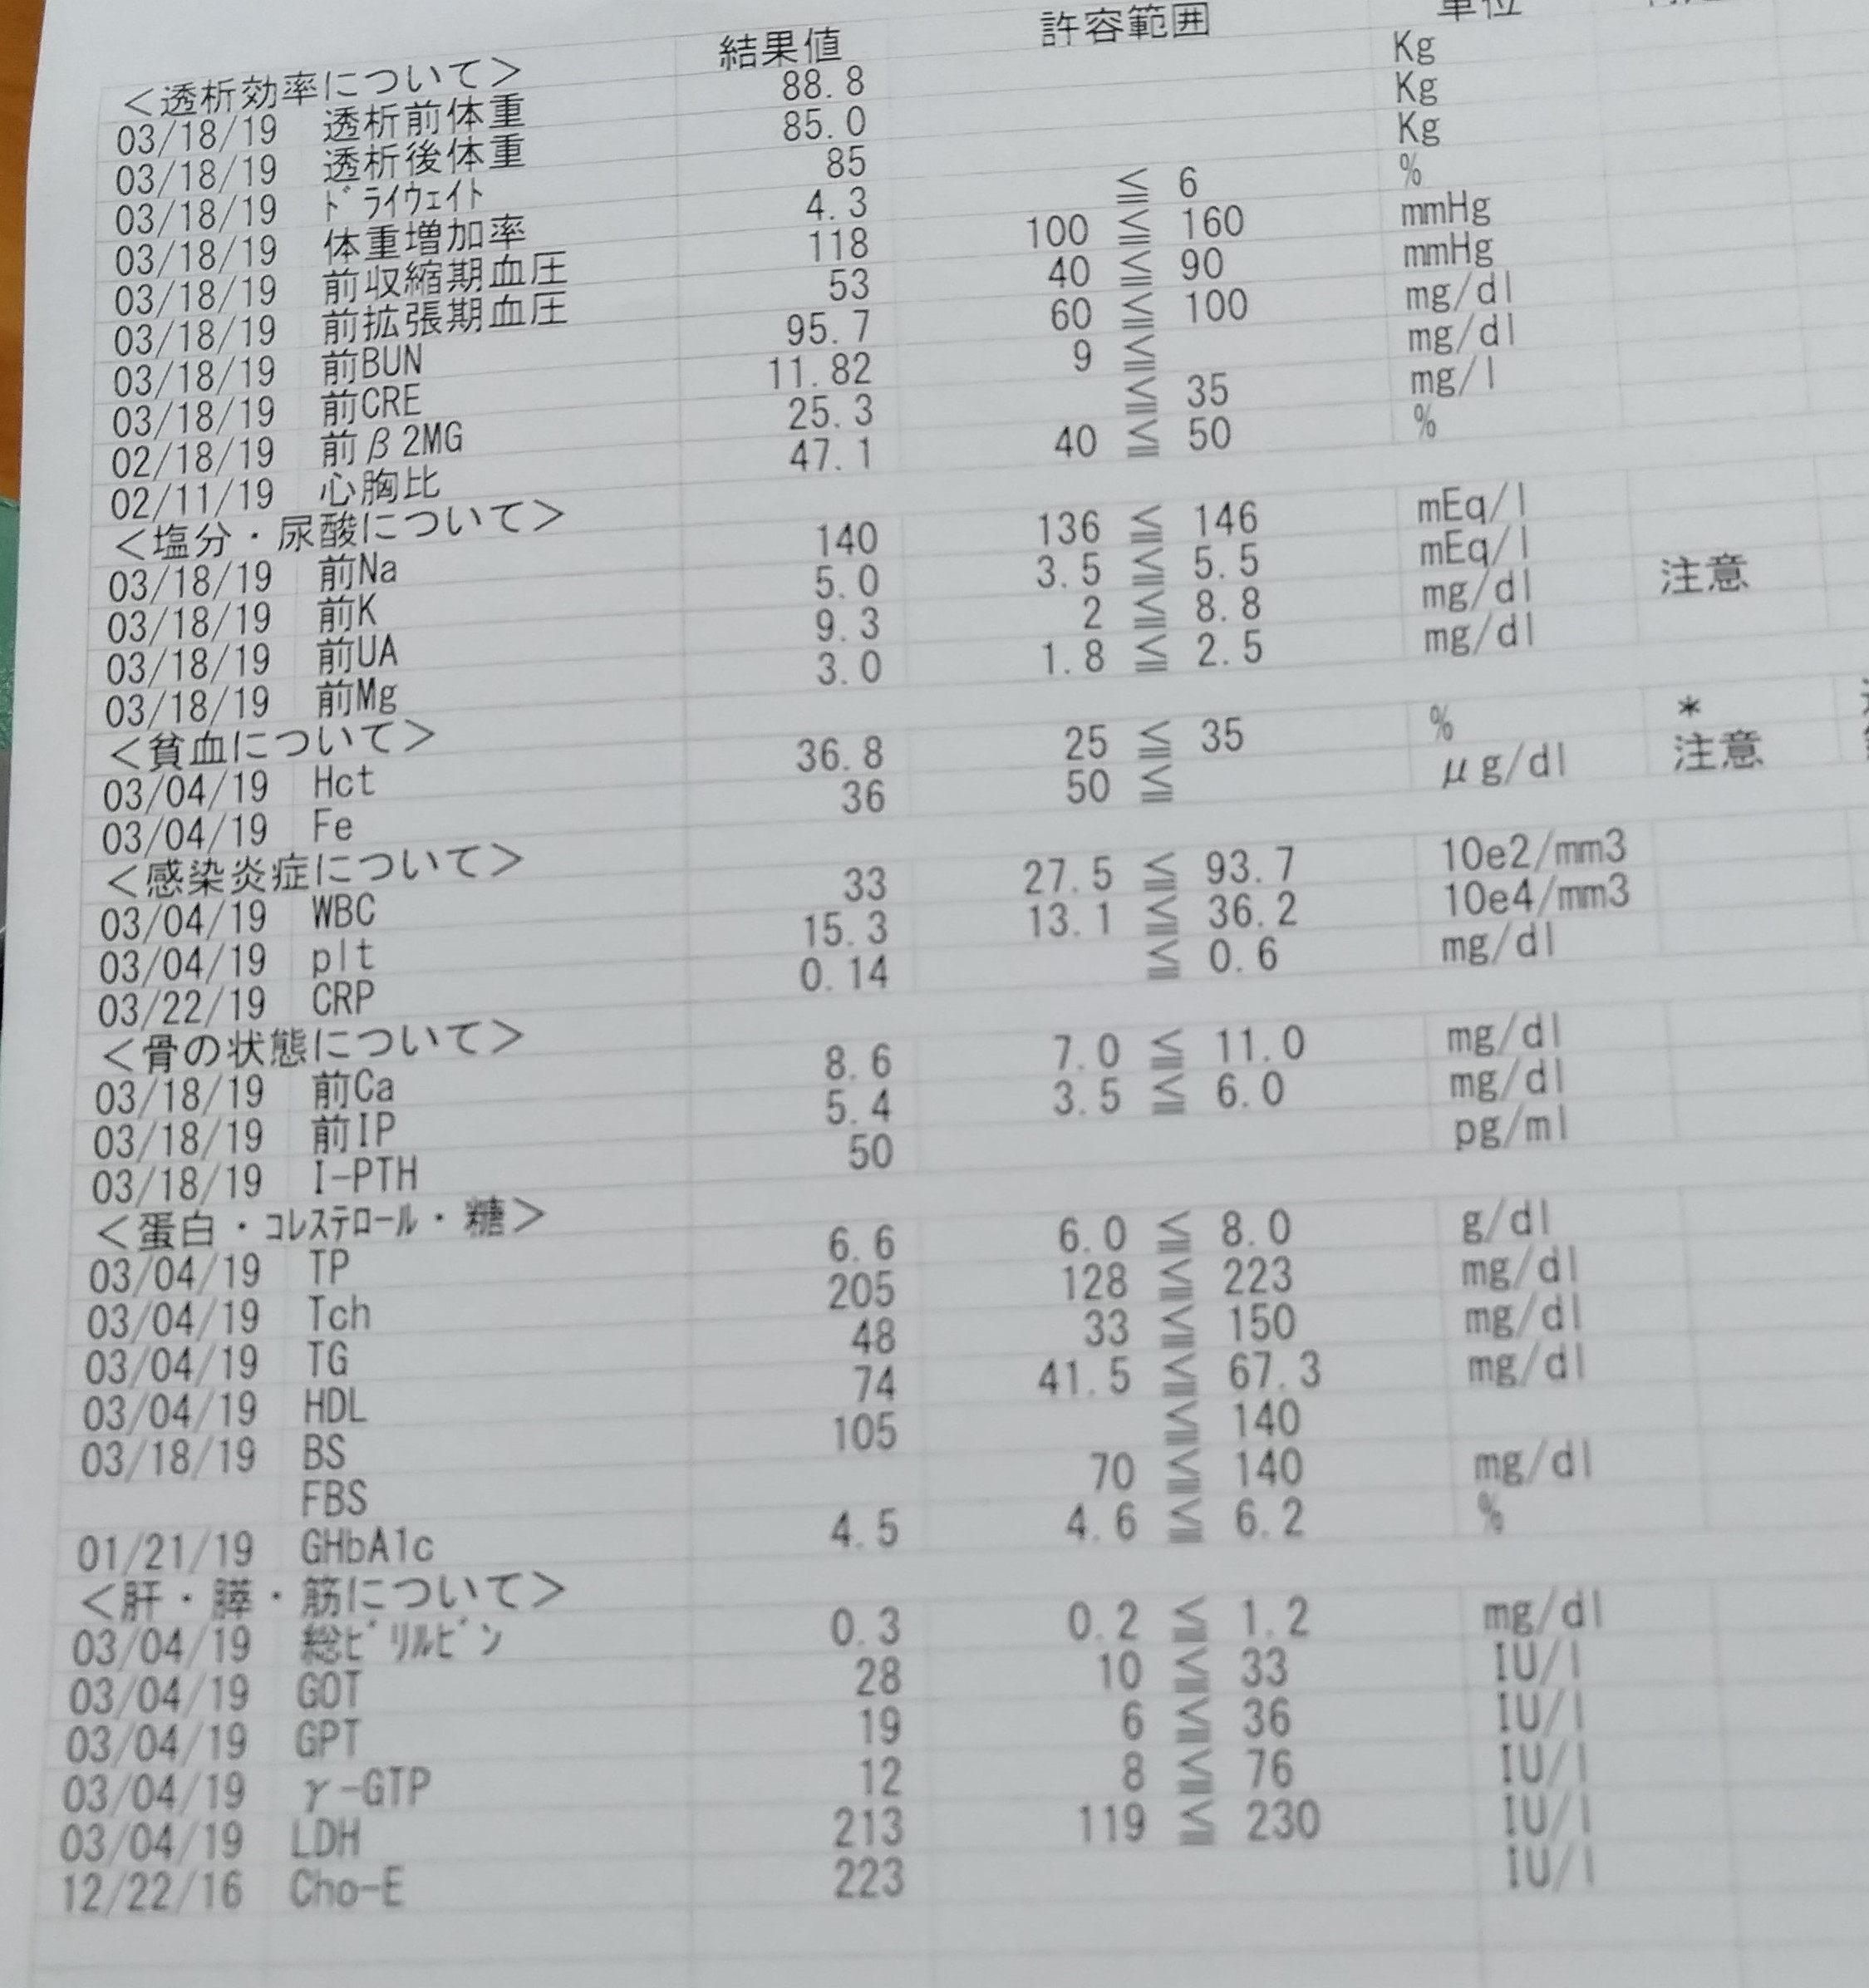 結果値 許容範囲 単位
<透析効率について>
03/18/19 透析前体重 88.8 Kg
03/18/19 透析後体重 85.0 Kg
03/18/19 ﾄﾞﾗｲｳｪｲﾄ 85 Kg
03/18/19 体重増加率 4.3 ≦ 6 %
03/18/19 前収縮期血圧 118 100 ≦ 160 mmHg
03/18/19 前拡張期血圧 53 40 ≦ 90 mmHg
03/18/19 前BUN 95.7 60 ≦ 100 mg/dl
03/18/19 前CRE 11.82 9 ≦ mg/dl
02/18/19 前β2MG 25.3 ≦ 35 mg/l
02/11/19 心胸比 47.1 40 ≦ 50 %
<塩分・尿酸について>
03/18/19 前Na 140 136 ≦ 146 mEq/l
03/18/19 前K 5.0 3.5 ≦ 5.5 mEq/l
03/18/19 前UA 9.3 2 ≦ 8.8 mg/dl 注意
03/18/19 前Mg 3.0 1.8 ≦ 2.5 mg/dl
<貧血について>
03/04/19 Hct 36.8 25 ≦ 35 % *
03/04/19 Fe 36 50 ≦ μg/dl 注意
<感染炎症について>
03/04/19 WBC 33 27.5 ≦ 93.7 10e2/mm3
03/04/19 plt 15.3 13.1 ≦ 36.2 10e4/mm3
03/22/19 CRP 0.14 ≦ 0.6 mg/dl
<骨の状態について>
03/18/19 前Ca 8.6 7.0 ≦ 11.0 mg/dl
03/18/19 前IP 5.4 3.5 ≦ 6.0 mg/dl
03/18/19 I-PTH 50 pg/ml
<蛋白・ｺﾚｽﾃﾛｰﾙ・糖>
03/04/19 TP 6.6 6.0 ≦ 8.0 g/dl
03/04/19 Tch 205 128 ≦ 223 mg/dl
03/04/19 TG 48 33 ≦ 150 mg/dl
03/04/19 HDL 74 41.5 ≦ 67.3 mg/dl
03/18/19 BS 105 ≦ 140
FBS 70 ≦ 140 mg/dl
01/21/19 GHbA1c 4.5 4.6 ≦ 6.2 %
<肝・膵・筋について>
03/04/19 総ﾋﾞﾘﾙﾋﾞﾝ 0.3 0.2 ≦ 1.2 mg/dl
03/04/19 GOT 28 10 ≦ 33 IU/l
03/04/19 GPT 19 6 ≦ 36 IU/l
03/04/19 γ-GTP 12 8 ≦ 76 IU/l
03/04/19 LDH 213 119 ≦ 230 IU/l
12/22/16 Cho-E 223 IU/l